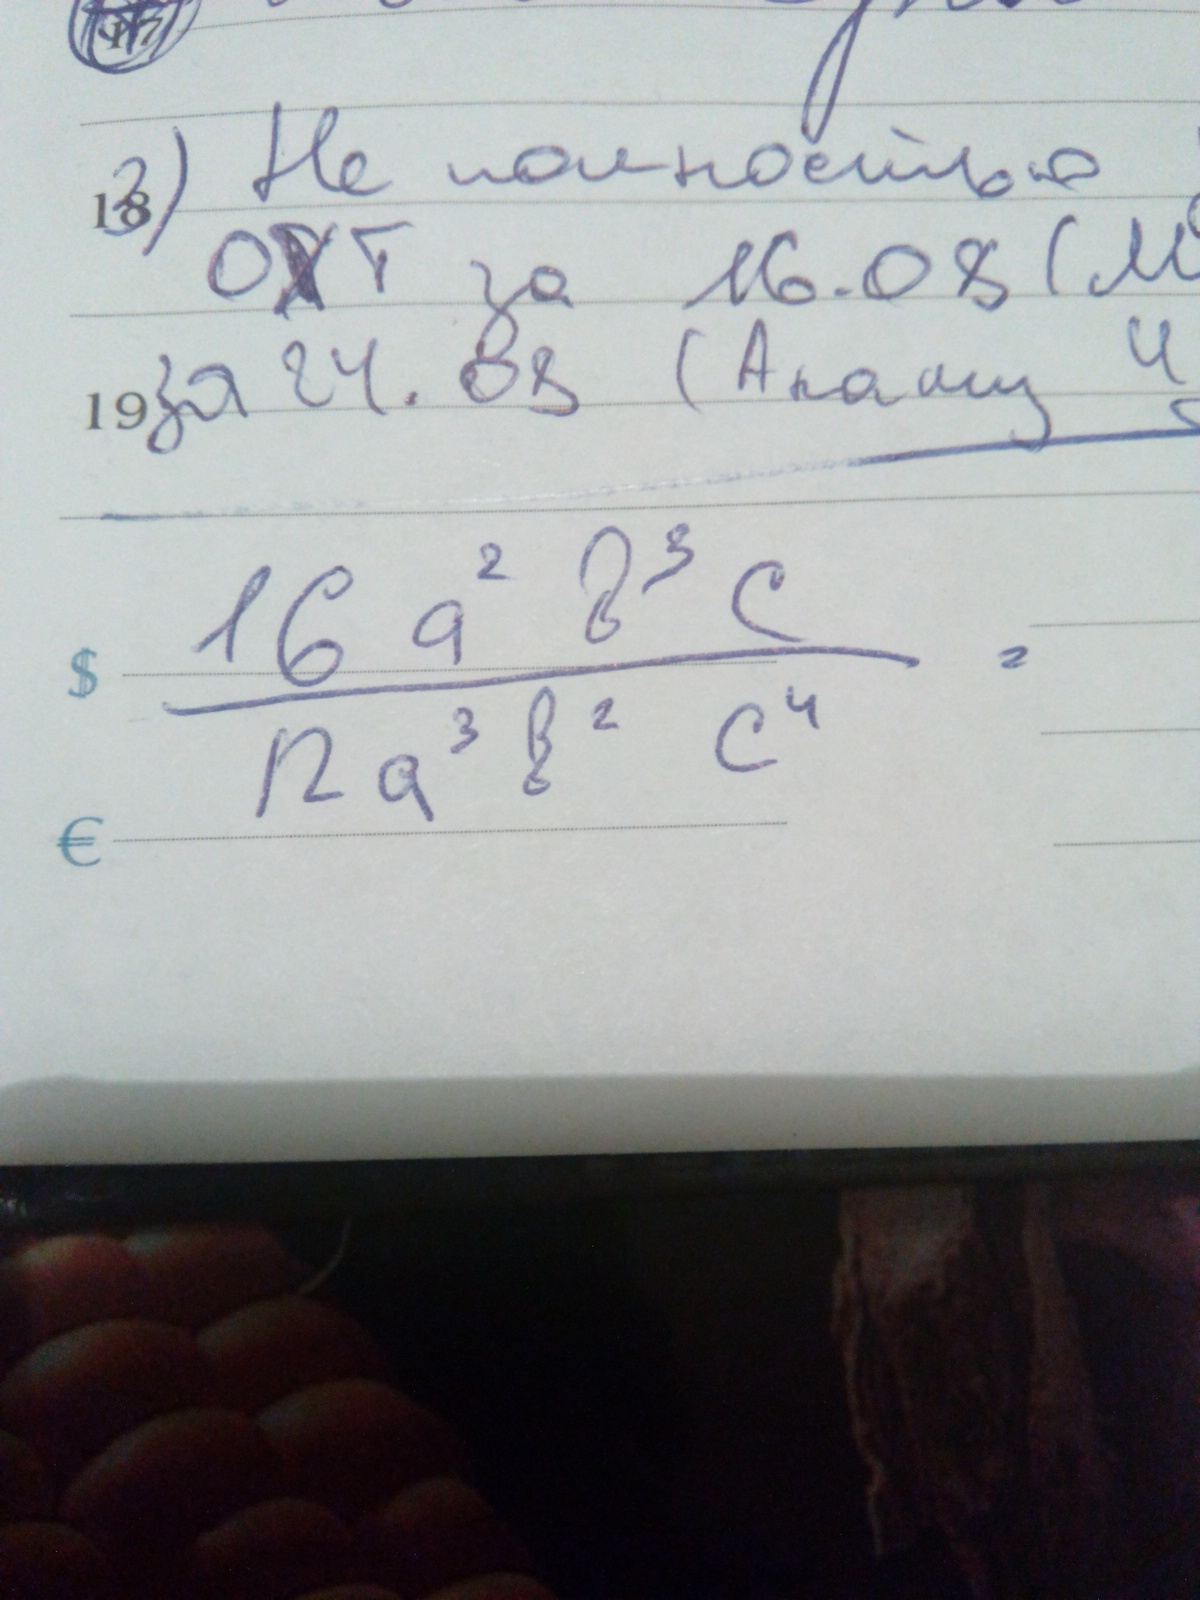 3) Не полностью
18
ОХТ за 16.08 (М
19 за 24.08 (Анализ 4
$ 16 a² b³ c
12 a³ b² c⁴ =
€